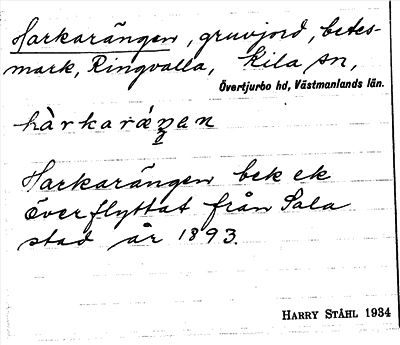 Harkarängen, gruvjord, betes-
mark, Ringvalla, Kila sn,
Övertjurbo hd, Västmanlands län.
hàrkaráŋ̣en
Harkarängen bek ek
överflyttat från Sala
stad år 1893.
HARRY STÅHL 1934